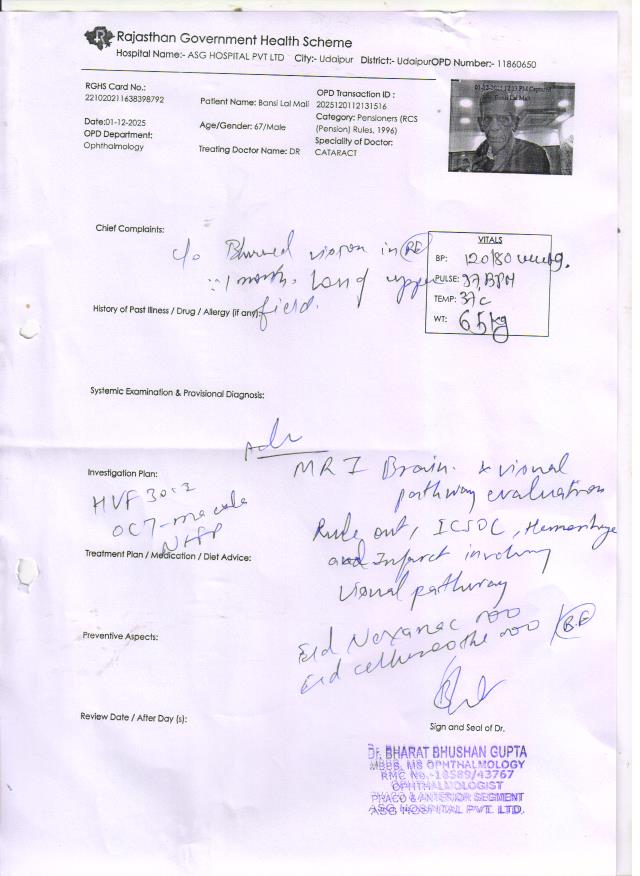 Rajasthan Government Health Scheme
Hospital Name:- ASG HOSPITAL PVT LTD City:- Udaipur District:- Udaipur OPD Number:- 11860650
RGHS Card No.:
221020211638398792
Date:01-12-2025
OPD Department:
Ophthalmology
Patient Name: Bansi Lal Mali
Age/Gender: 67/Male
Treating Doctor Name: DR
OPD Transaction ID :
2025120112131516
Category: Pensioners (RCS
(Pension) Rules, 1996)
Speciality of Doctor:
CATARACT
Bansi Lal Mali
Chief Complaints:
c/o Blurred vision in RE
1 month. Long upper
field.
VITALS
BP: 120/80
PULSE: 37 BPM
TEMP: 37 c
WT: 65 kg
History of Past Illness / Drug / Allergy (if any)
Systemic Examination & Provisional Diagnosis:
Adv
MRI Brain & visual
pathway evaluation
Investigation Plan:
HVF 30-2
OCT-macula
Rule out, Hemorrhage
and Infarct involving
visual pathway
Treatment Plan / Medication / Diet Advice:
Preventive Aspects:
E/d
E/d
Review Date / After Day (s):
Sign and Seal of Dr.
Dr. BHARAT BHUSHAN GUPTA
MBBS, MS OPHTHALMOLOGY
RMC No.-18589/43767
OPHTHALMOLOGIST
PHACO & ANTERIOR SEGMENT
ASG HOSPITAL PVT. LTD.